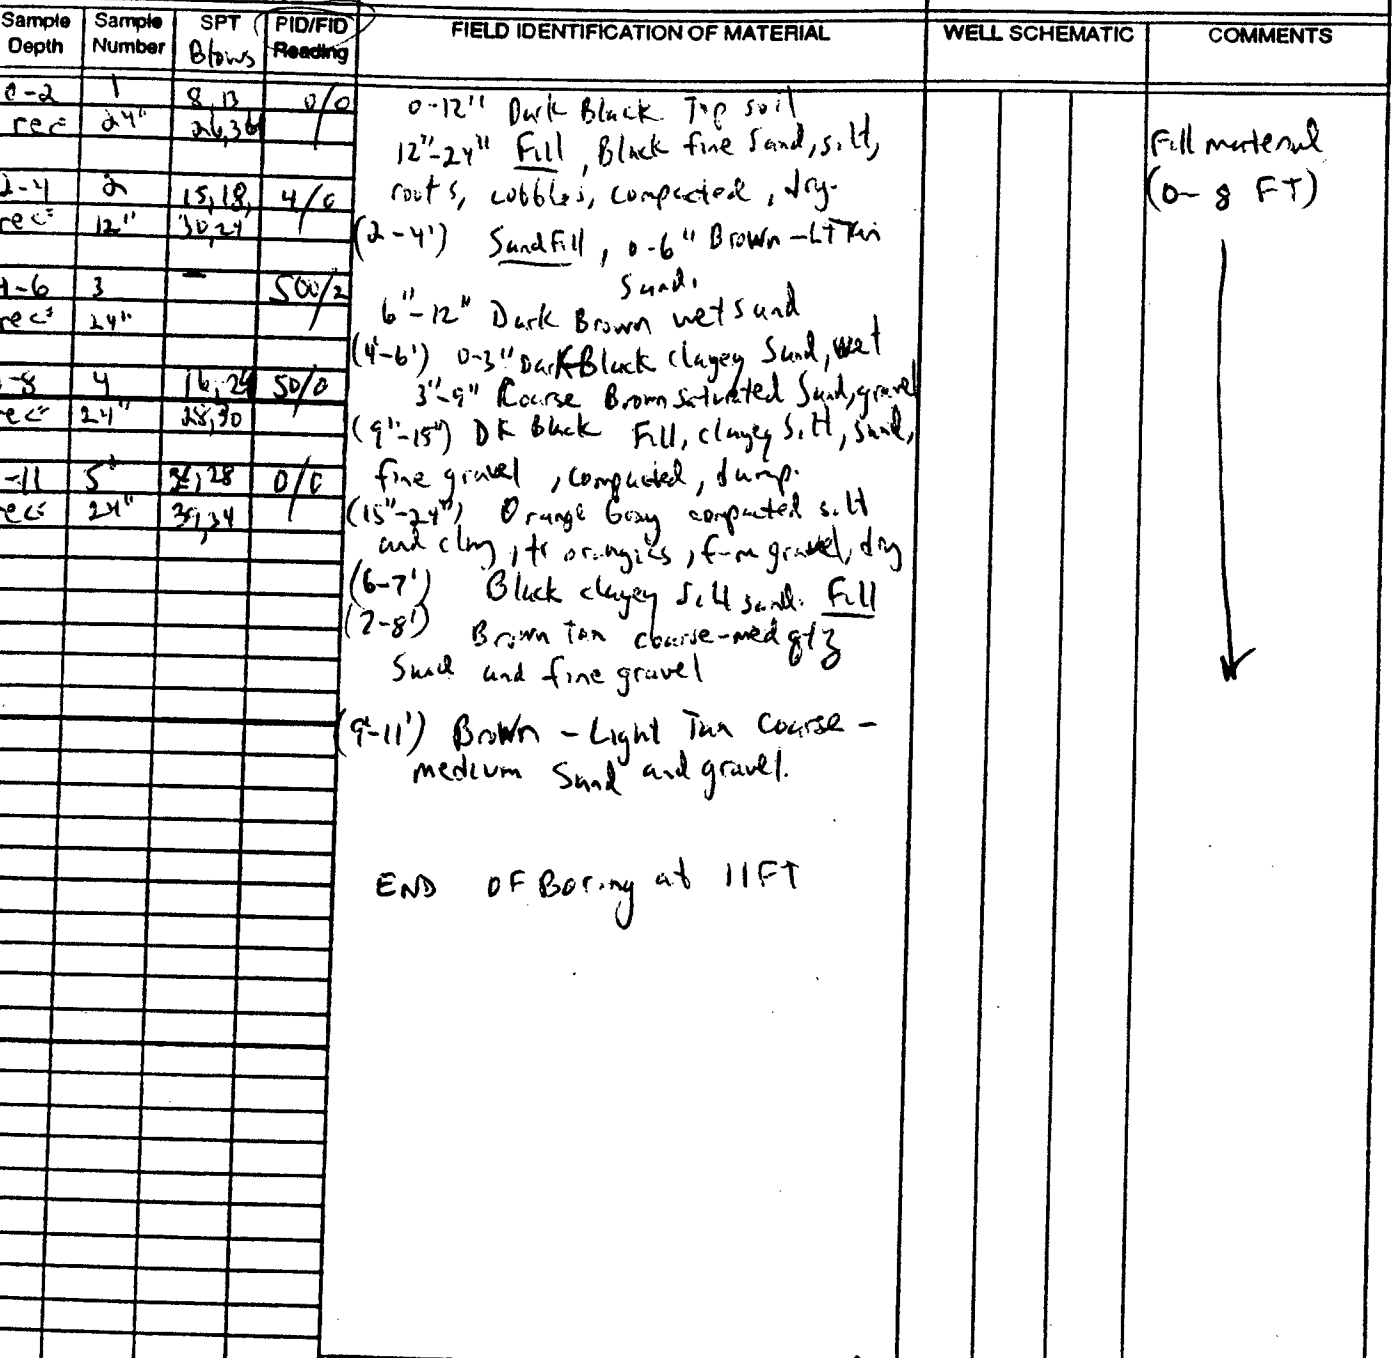 Sample Depth Sample Number SPT Blows PID/FID Reading FIELD IDENTIFICATION OF MATERIAL WELL SCHEMATIC COMMENTS
0-2 1 8,13 0/0
rec= 24" 26,36
2-4 2 15,18, 4/0
rec= 12" 30,27
4-6 3 - 500/2
rec= 24"
-8 4 16,24 50/0
rec= 24" 28,30
-11 5 28 0/0
rec= 24" 39,34
0-12" Dark Black Top soil
12"-24" Fill, Black fine Sand, silt,
roots, cobbles, compacted, dry.
(2-4') Sand Fill, 0-6" Brown-LT Tan
Sand.
6"-12" Dark Brown wet sand
(4'-6') 0-3" Dark Black clayey Sand, wet
3"-9" Coarse Brown saturated Sand, gravel
(9"-15") DK Black Fill, clayey silt, sand,
fine gravel, compacted, damp.
(15"-24") Orange Gray compacted silt
and clay, tr organics, f-m gravel, dry
(6-7') Black clayey silt sand. Fill
(7-8') Brown Tan coarse-med qtz
Sand and fine gravel
(9'-11') Brown - Light Tan Coarse -
medium Sand and gravel.
END OF Boring at 11FT
Fill material
(0-8 FT)